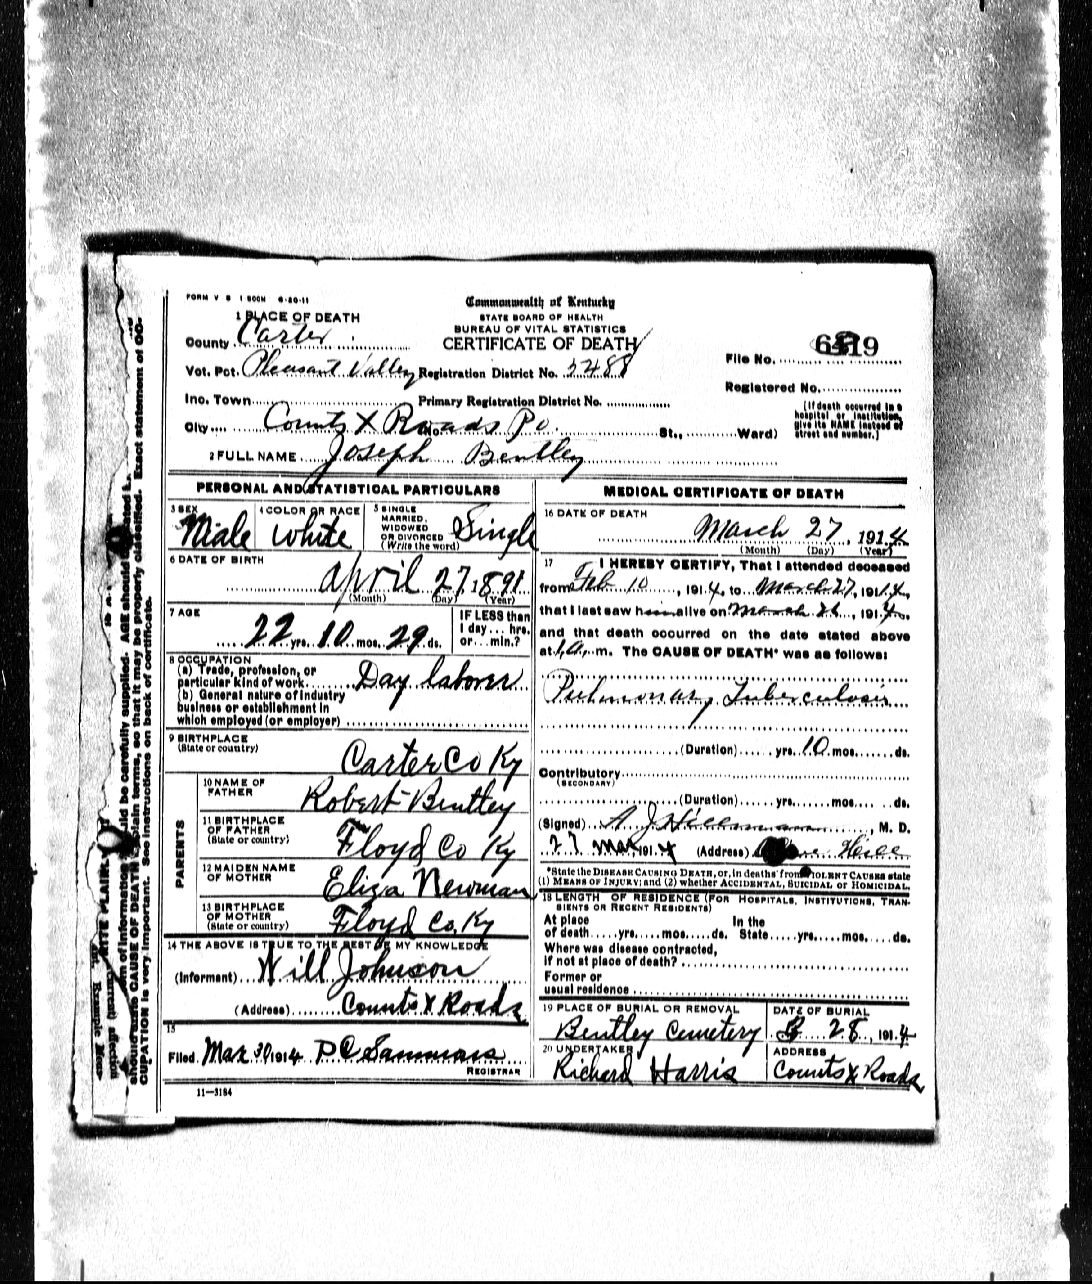 FORM V S 1 500M 6-20-11
Commonwealth of Kentucky
STATE BOARD OF HEALTH
BUREAU OF VITAL STATISTICS
CERTIFICATE OF DEATH
1 PLACE OF DEATH
County Carter
Vot. Pct. Pleasant Valley Registration District No. 5488
File No. 19
Registered No.
Inc. Town Primary Registration District No.
City Counts X Roads Po. No. St., Ward)
[If death occurred in a hospital or institution, give its NAME instead of street and number.]
2 FULL NAME Joseph Bentley
PERSONAL AND STATISTICAL PARTICULARS
3 SEX Male
4 COLOR OR RACE White
5 SINGLE MARRIED, WIDOWED OR DIVORCED (Write the word) Single
6 DATE OF BIRTH
April 27, 1891
(Month) (Day) (Year)
7 AGE
22 yrs. 10 mos. 29 ds.
IF LESS than 1 day... hrs. or... min.?
8 OCCUPATION
(a) Trade, profession, or particular kind of work Day laborer
(b) General nature of industry business or establishment in which employed (or employer)
9 BIRTHPLACE (State or country) Carter Co Ky
PARENTS
10 NAME OF FATHER Robert Bentley
11 BIRTHPLACE OF FATHER (State or country) Floyd Co Ky
12 MAIDEN NAME OF MOTHER Eliza Newman
13 BIRTHPLACE OF MOTHER (State or country) Floyd Co, Ky
14 THE ABOVE IS TRUE TO THE BEST OF MY KNOWLEDGE
(Informant) Will Johnson
(Address) Counts X Roads
15
Filed Mar 30 1914 P C Sammons
REGISTRAR
11—3184
MEDICAL CERTIFICATE OF DEATH
16 DATE OF DEATH
March 27, 1914
(Month) (Day) (Year)
17 I HEREBY CERTIFY, That I attended deceased
from Feb 10, 1914, to March 27, 1914,
that I last saw him alive on March 26, 1914,
and that death occurred on the date stated above
at 1 a. m. The CAUSE OF DEATH* was as follows:
Pulmonary Tuberculosis
(Duration) yrs. 10 mos. ds.
Contributory
(SECONDARY)
(Duration) yrs. mos. ds.
(Signed) A J , M. D.
27 Mar, 1914 (Address)
*State the DISEASE CAUSING DEATH, or, in deaths from VIOLENT CAUSES state
(1) MEANS OF INJURY; and (2) whether ACCIDENTAL, SUICIDAL or HOMICIDAL.
18 LENGTH OF RESIDENCE (FOR HOSPITALS, INSTITUTIONS, TRANSIENTS OR RECENT RESIDENTS)
At place of death yrs. mos. ds. In the State yrs. mos. ds.
Where was disease contracted,
If not at place of death?
Former or
usual residence
19 PLACE OF BURIAL OR REMOVAL Bentley Cemetery
DATE OF BURIAL 28, 1914
20 UNDERTAKER Richard Harris
ADDRESS Counts X Roads